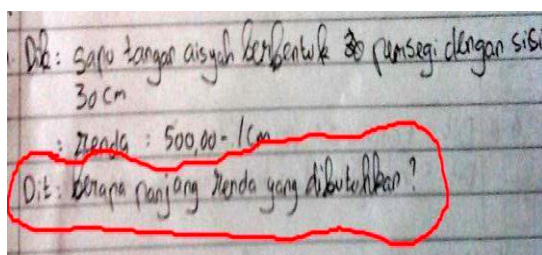 Dik: sapu tangan aisyah berbentuk persegi dengan sisi
30 cm
: Renda : 500,00 - 1 cm
Dit: berapa panjang renda yang dibutuhkan?